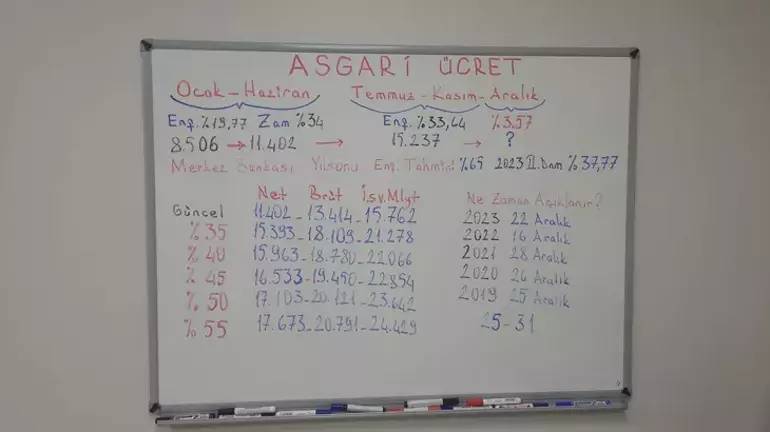 ASGARİ ÜCRET
Ocak-Haziran Temmuz-Kasım-Aralık
Enf. %19,77 Zam %34 Enf. %33,44 %3.57
8.506 → 11.402 → 15.237 → ?
Merkez Bankası Yılsonu Enf. Tahmini %65 2023 II. Dam %37,77
Net Brüt İşv. Mlyt Ne Zaman Açıklanır?
Güncel 11.402-13.414-15.762 2023 22 Aralık
%35 15.393-18.109-21.278 2022 16 Aralık
%40 15.963-18.780-22.066 2021 28 Aralık
%45 16.533-19.450-22.854 2020 26 Aralık
%50 17.103-20.121-23.642 2019 25 Aralık
%55 17.673-20.791-24.429 25-31